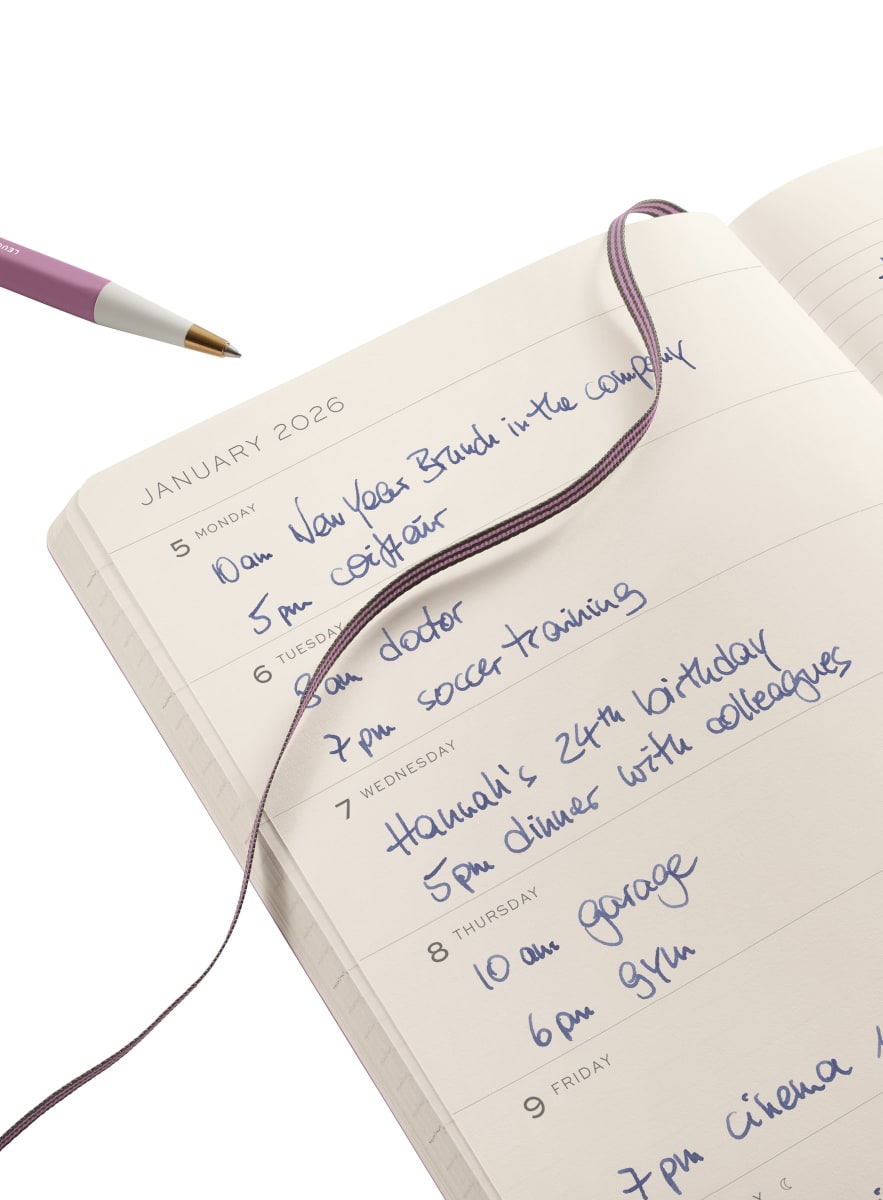 JANUARY 2026
5 MONDAY
10am New Year Brunch in the company
5pm coiffeur
6 TUESDAY
8am doctor
7pm soccer training
7 WEDNESDAY
Hannah's 24th birthday
5pm dinner with colleagues
8 THURSDAY
10 am garage
6pm gym
9 FRIDAY
7pm cinema